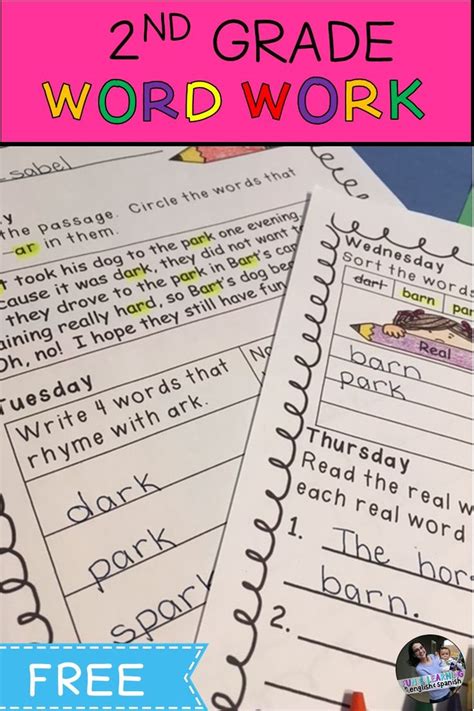 2ND GRADE
WORD WORK
sabel
the passage. Circle the words that
-ar in them.
took his dog to the park one evening.
cause it was dark, they did not want
they drove to the park in Bart's car.
aining really hard, so Bart's dog
Oh, no! I hope they still have fun
Tuesday
Write 4 words that
rhyme with ark.
dark
park
spark
Wednesday
Sort the words
dart barn par
Real
barn
park
Thursday
Read the real w
each real word
1. The hor
barn.
2.
FREE
English & Spanish